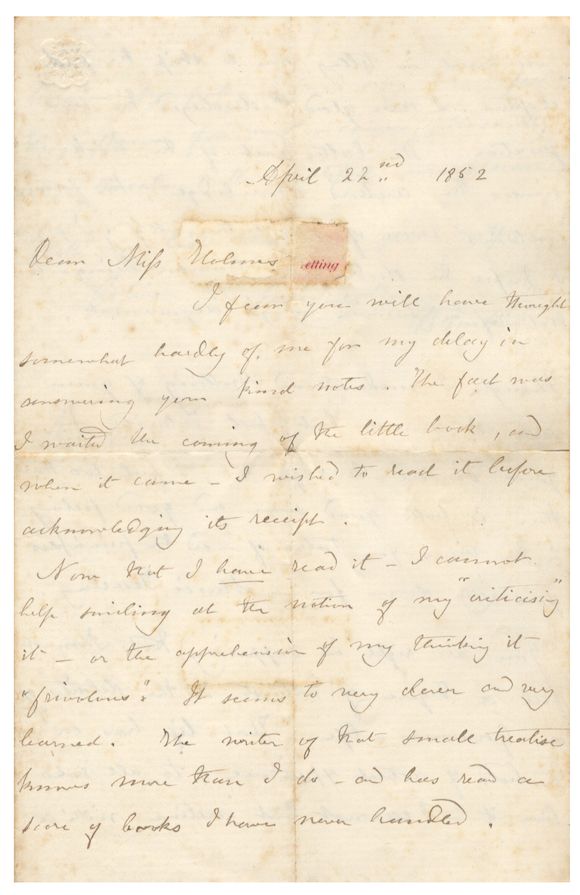 April 22nd 1852
Dear Miss Holmes
etting
I fear you will have thought
somewhat hardly of me for my delay in
answering your kind notes. The fact was
I waited the coming of the little book, and
when it came - I wished to read it before
acknowledging its receipt.
Now that I have read it - I cannot
help smiling at the notion of my "criticising"
it - or the apprehension of my thinking it
"frivolous". It seems to very clever and very
learned. The writer of that small treatise
knows more than I do - and has read a
score of books I have never handled.